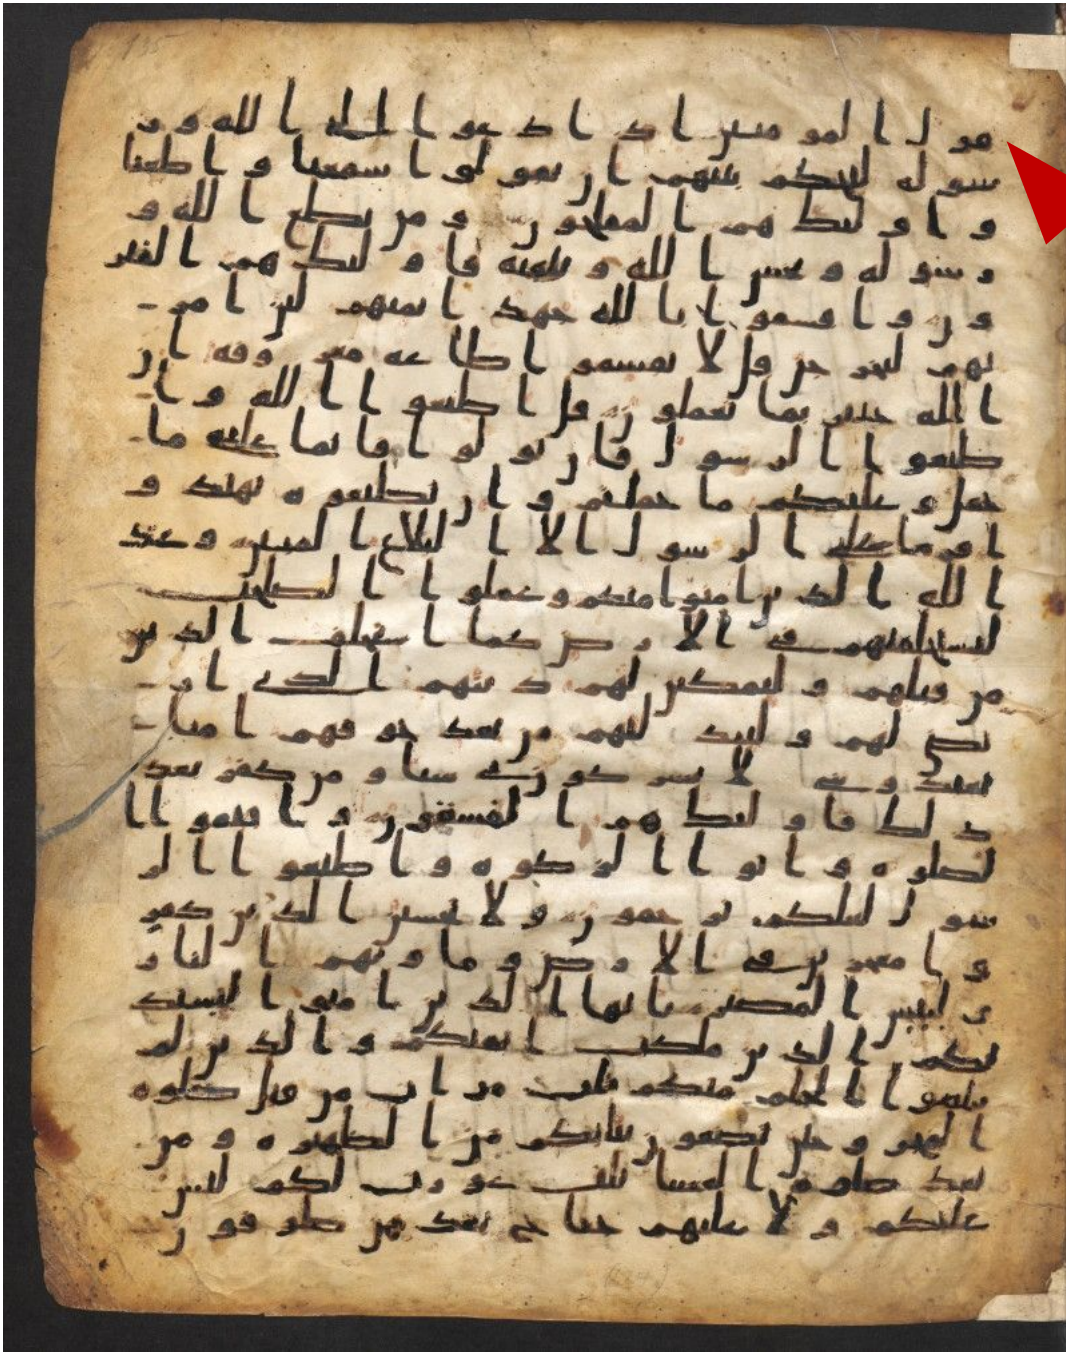 قول المومنين اذا دعوا الى الله و ر
سوله ليحكم بينهم ان يقولوا سمعنا و اطعنا
و اوليك هم المفلحون و من يطع الله و
رسوله و يخش الله و يتقه فاوليك هم الفيز
ون و اقسموا بالله جهد ايمنهم لين امر
تهم ليخرجن قل لا تقسموا طاعه معروفه ان
الله خبير بما تعملون قل اطيعوا الله و ا
طيعوا الرسول فان تولوا فانما عليه ما
حمل و عليكم ما حملتم و ان تطيعوه تهتدو
ا و ما على الرسول الا البلاغ المبين وعد
الله الذين امنوا منكم وعملوا الصلحت
ليستخلفنهم في الارض كما استخلف الذين
من قبلهم و ليمكنن لهم دينهم الذي ار
تضى لهم و ليبدلنهم من بعد خوفهم امنا
يعبدونني لا يشركون بي شيا و من كفر بعد
ذلك فاوليك هم الفسقون و اقيموا ا
لصلوه و اتوا الزكوه و اطيعوا الر
سول لعلكم ترحمون و لا تحسبن الذين كفر
وا معجزين في الارض و ماويهم النار
و لبيس المصير يايها الذين امنوا ليستذ
نكم الذين ملكت ايمنكم و الذين لم
يبلغوا الحلم منكم ثلث مرات من قبل صلوه
الفجر و حين تضعون ثيابكم من الظهيره و من
بعد صلوه العشا ثلث عورت لكم ليس
عليكم و لا عليهم جناح بعدهن طوفون